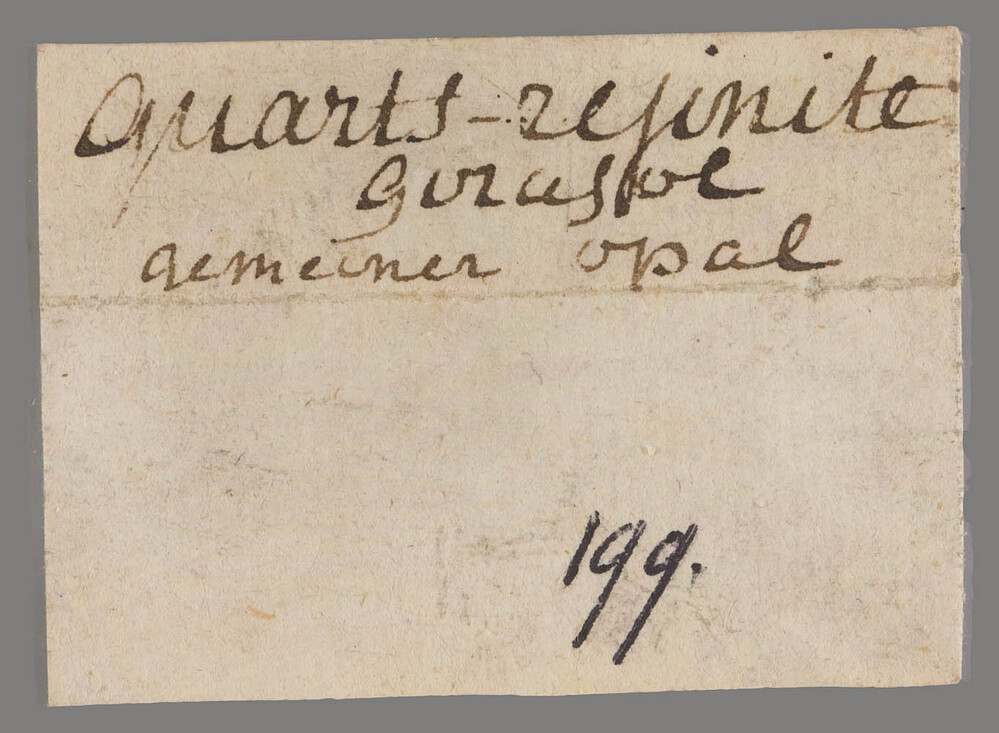 Quarts-resinite
Girassol
gemeiner opal
199.